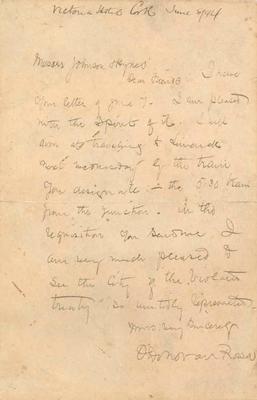 Victoria Hotel Cork June 9/94
Messrs Johnson & Hynes
Dear Friends I have
your letter of June 7. I am pleased
with the Spirit of it. I will
travelling to Limerick
next Wednesday by the train
you designate – the 5.30 train
from the junction. In the
requisition you I
am very much pleased to
see the City of the Violated
treaty so represented
Yours very Sincerely
O'Donovan Rossa